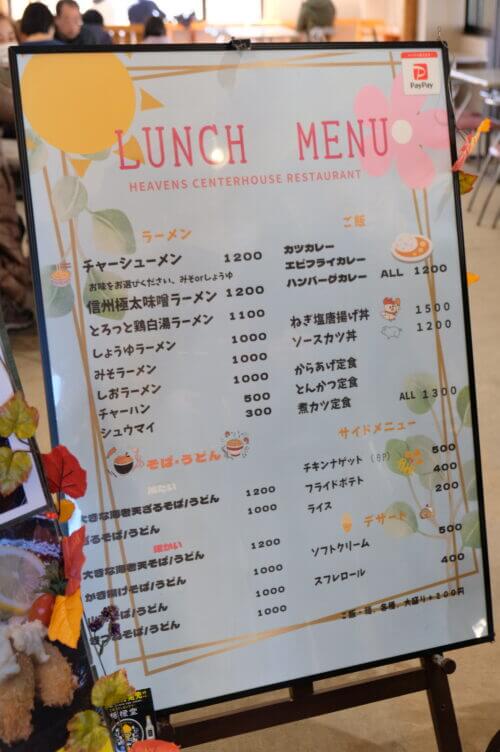 PayPay
LUNCH MENU
HEAVENS CENTERHOUSE RESTAURANT
ラーメン
チャーシューメン 1200
お味をお選びください、みそorしょうゆ
信州極太味噌ラーメン 1200
とろっと鶏白湯ラーメン 1100
しょうゆラーメン 1000
みそラーメン 1000
しおラーメン 1000
チャーハン 500
シュウマイ 300
そば・うどん
冷たい
大きな海老天ざるそば/うどん 1200
ざるそば/うどん 1000
温かい
大きな海老天そば/うどん 1200
かき揚げそば/うどん 1000
そば/うどん 1000
きつねそば/うどん 1000
ご飯
カツカレー
エビフライカレー
ハンバーグカレー ALL 1200
ねぎ塩唐揚げ丼 1500
ソースカツ丼 1200
からあげ定食
とんかつ定食
煮カツ定食 ALL 1300
サイドメニュー
チキンナゲット (6P) 500
フライドポテト 400
ライス 200
デザート
ソフトクリーム 500
スフレロール 400
ご飯・麺、各種、大盛り+200円